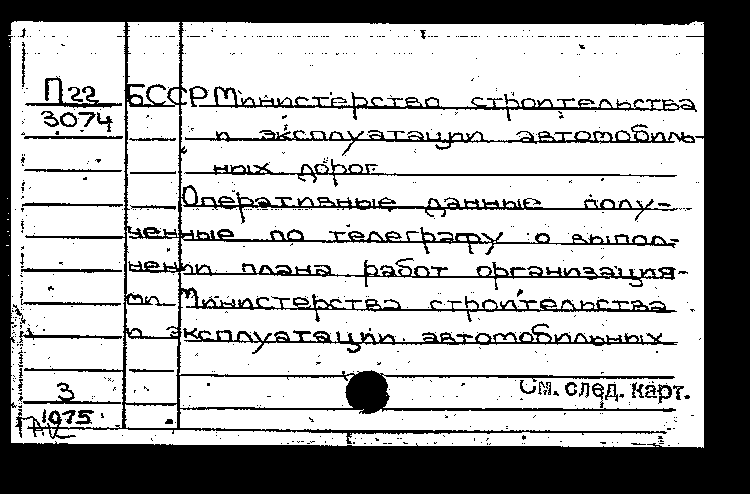 П22 БССР Министерство строительства
3074 и эксплуатации автомобиль-
ных дорог
Оперативные данные полу-
ченные по телеграфу о выпол-
нении плана работ организация-
ми Министерства строительства
и эксплуатации автомобильных
3 См. след. карт.
1075